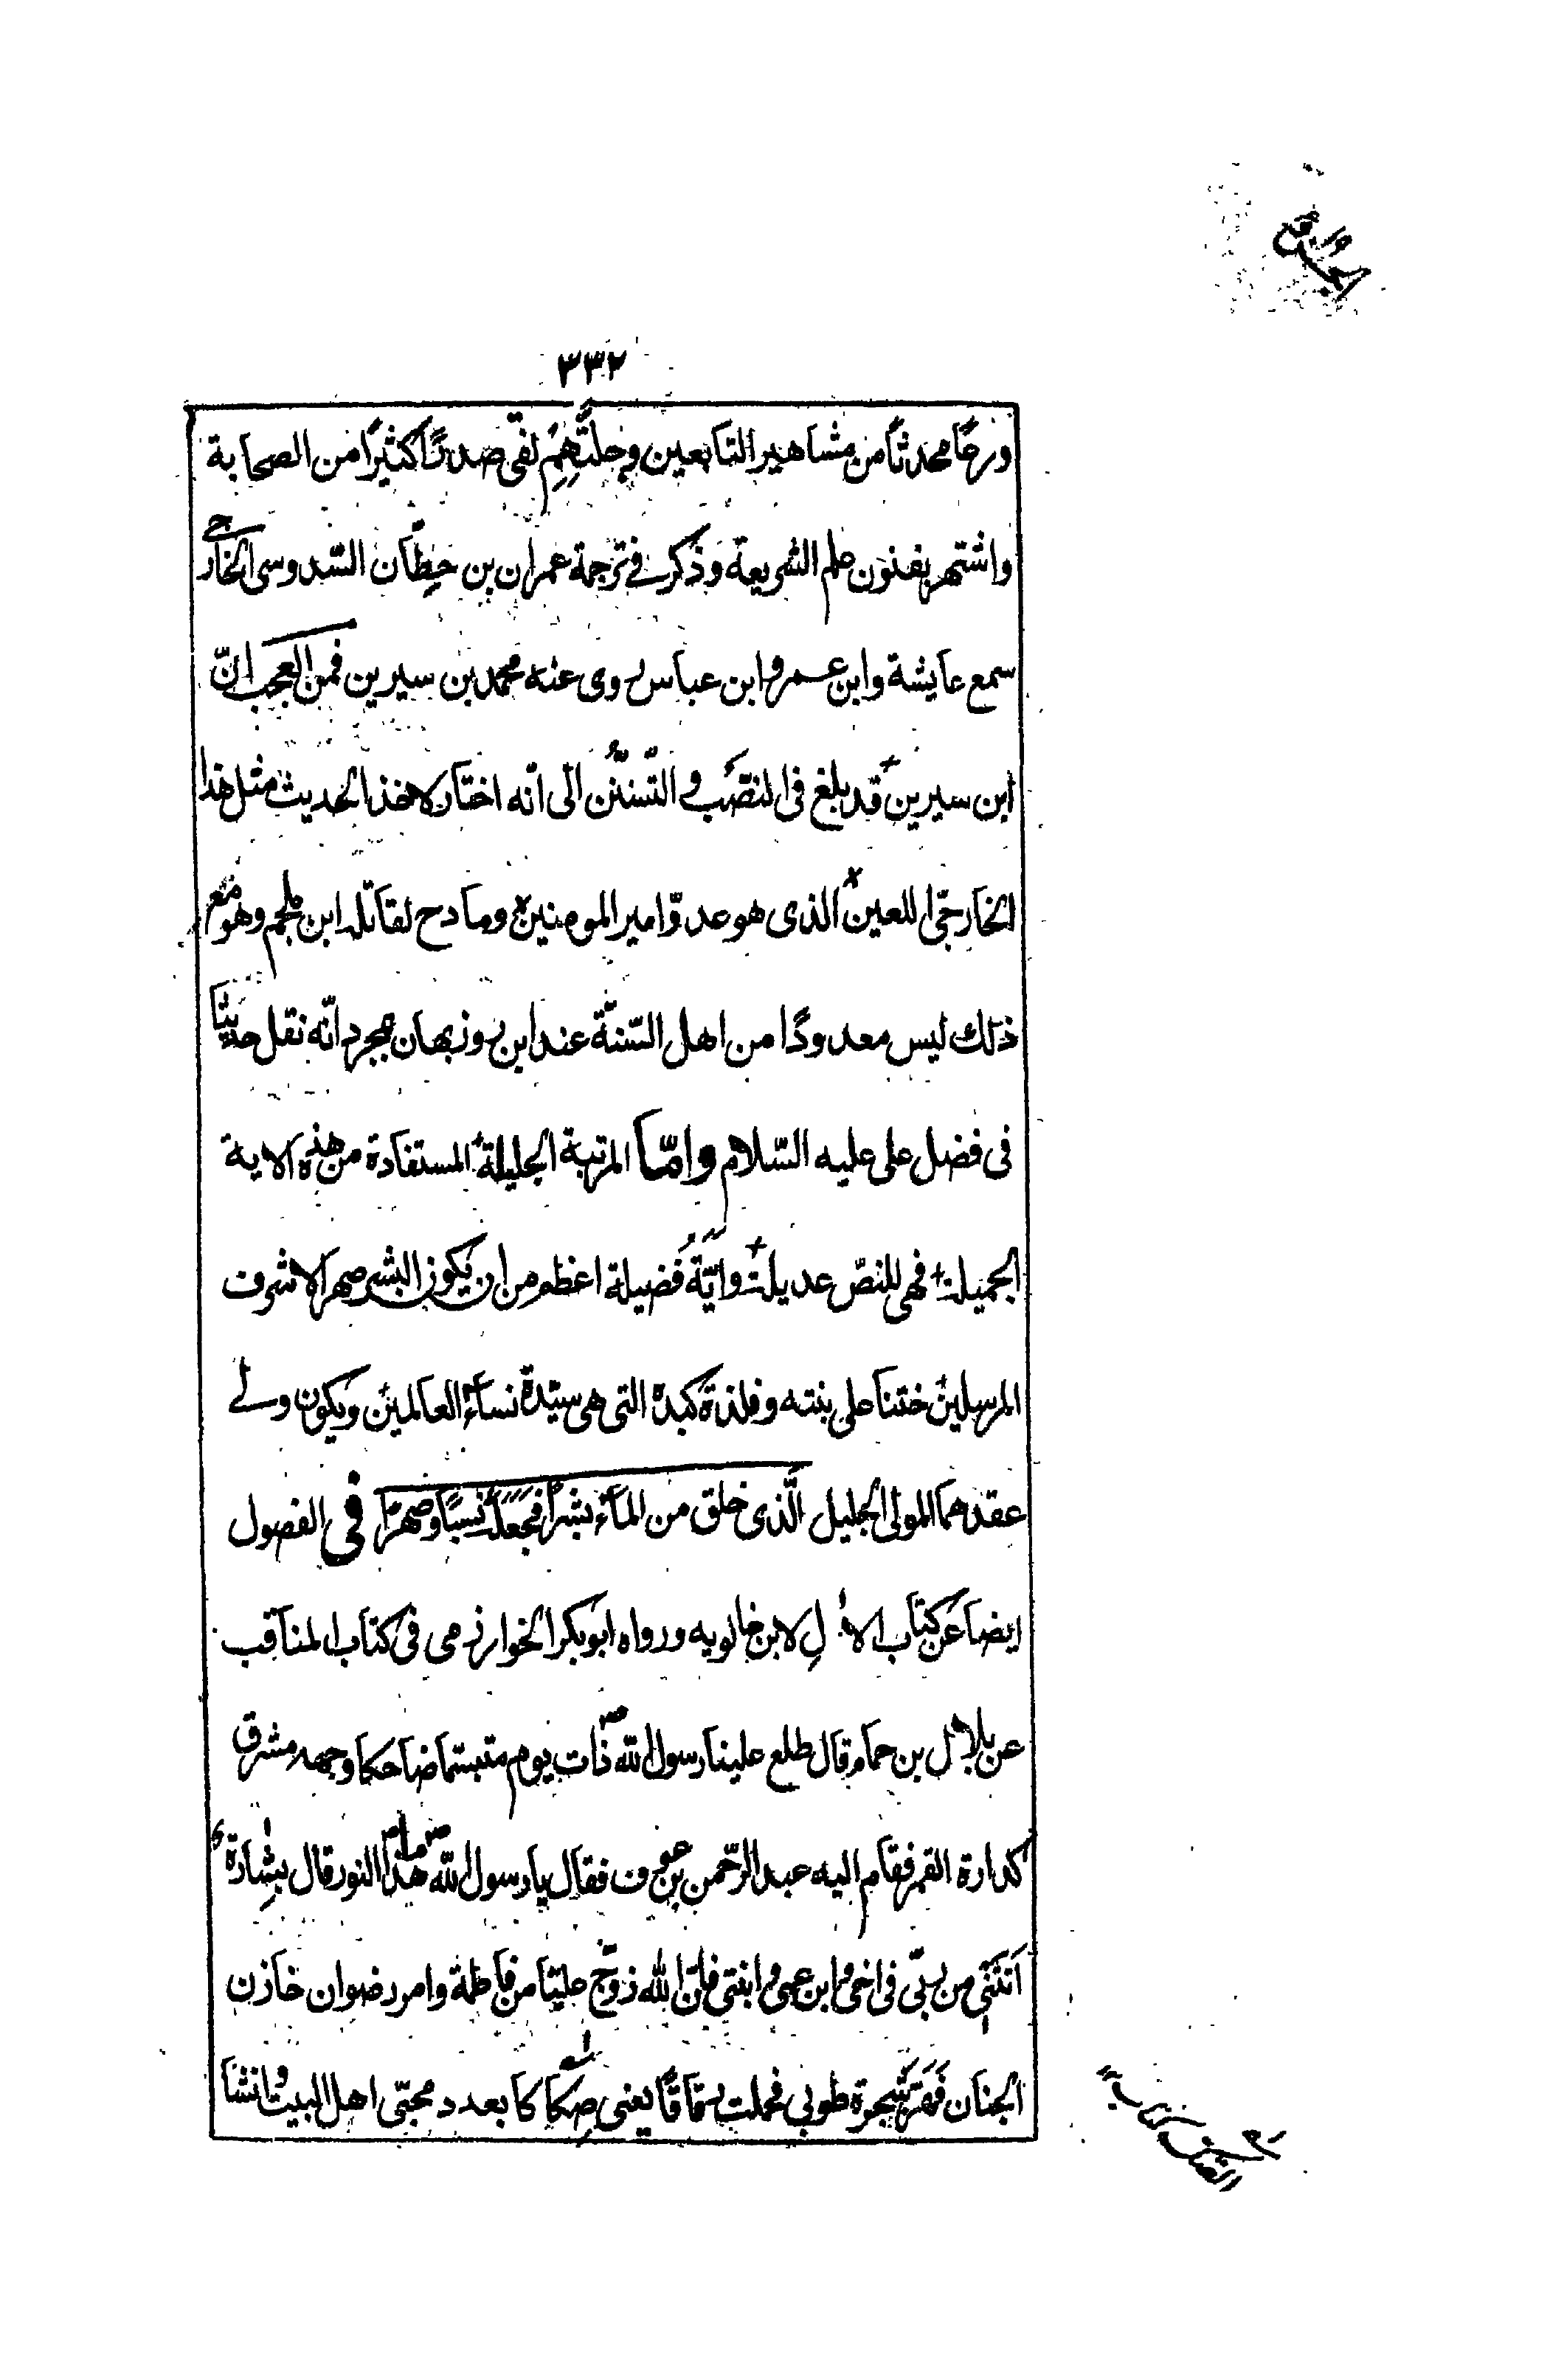 ٣٣٢
ورعًا محدثًا من مشاهير التابعين وجلتهم لقى صدرًا كثيرًا من الصحابة
واشتهر بفنون علم الشريعة وذكر فى ترجمة عمران بن حِطّان السّدوسى الخارجى
سمع عايشة وابن عمر وابن عباس روى عنه محمد بن سيرين فمن العجب انّ
ابن سيرين قد بلغ فى النصّب و التّسنّن الى انّه اختار لاخذ الحديث مثل هذا
الخارجىّ اللعين الذى هو عدوّ امير المومنين ع ومادح لقاتله ابن ملجم وهو مع
ذلك ليس معدودًا من اهل السّنّة عند ابن روزبهان بمجرد انّه نقل حديثًا
فى فضل على عليه السّلام وامّا المرتبة الجليلة المستفادة من هذه الاية
الجميلة فهى للنصّ عديلة وايّة فضيلة اعظم من ان يكون البشر صهرا لاشرف
المرسلين ختنا على بنته وفلذة كبده التى هى سيّدة نساء العالمين ويكون ولى
عقدهما المولى الجليل الّذى خلق من الماء بشرًا فجعله نسبًا وصهرًا فى الفصول
ايضا عن كتاب الالِ لابن خالويه ورواه ابو بكر الخوارزمى فى كتاب المناقب
عن بلال بن حمام قال طلع علينا رسول الله ص ذات يوم متبسّما ضاحكا وجهه مشرق
كدارة القمر فقام اليه عبد الرّحمن بن عوف فقال يا رسول الله ص ما هذا النور قال بشارة
اتتنى من ربّى فى اخى وابن عمى وابنتى فانّ الله زوّج عليّا من فاطمة وامر رضوان خازن
الجنان فهزّ شجرة طوبى فحملت رقاقًا يعنى صِكاكا بعدد محبّى اهل البيت وانشا